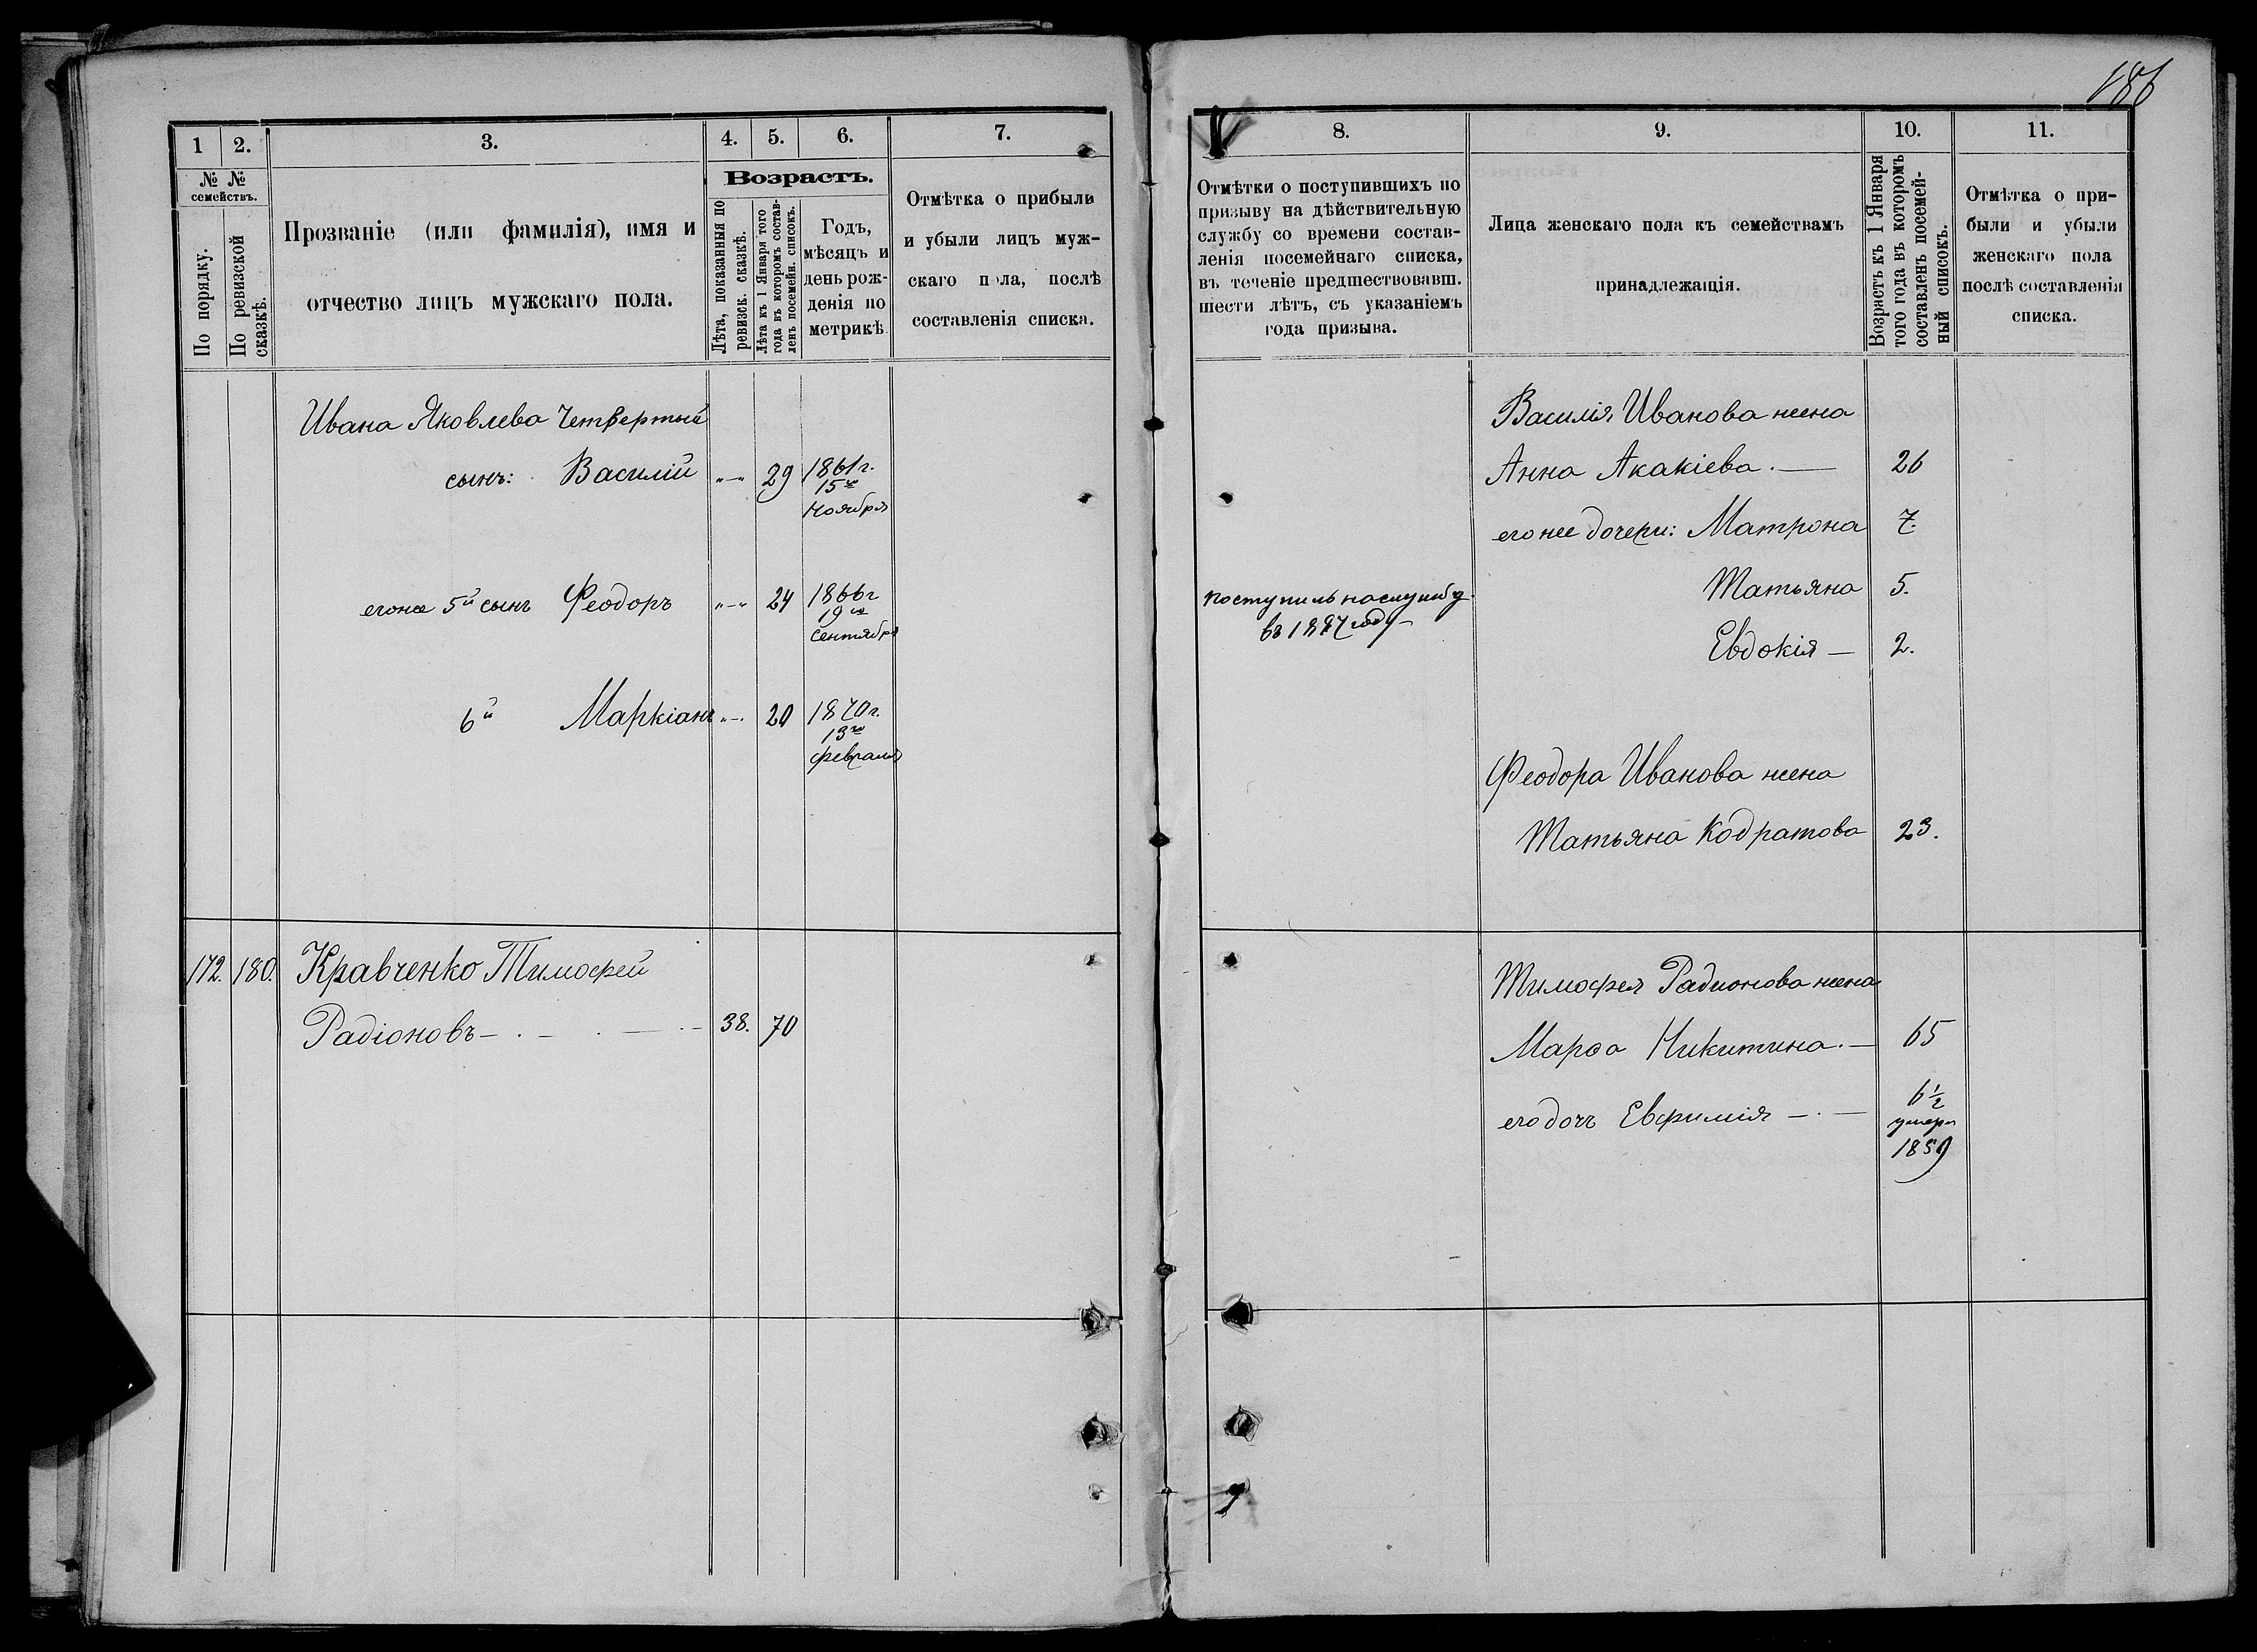 186
1
2.
3.
4.
5.
6.
7.
№ №
семействъ.
По порядку.
По ревизской
сказкѣ.
Прозваніе (или фамилія), имя и
отчество лицъ мужскаго пола.
Возрастъ.
Лѣта, показанныя по
ревизск. сказкѣ.
Лѣта къ 1 Января того
года въ которомъ состав-
ленъ посемейн. списокъ.
Годъ,
мѣсяцъ и
день рож-
денія по
метрикѣ
Отмѣтка о прибыли
и убыли лицъ муж-
скаго пола, послѣ
составленія списка.
Ивана Яковлева Четвертый
сынъ: Василій „—„ 29 1861 г.
15го
Ноября
его же 5й сынъ Феодоръ „—„ 24 1866 г
19го
Сентября
6й Маркіанъ „—„ 20 1870 г.
13го
февраля
172. 180. Кравченко Тимофей
Радіоновъ — 38. 70
8.
9.
10.
11.
Отмѣтки о поступившихъ по
призыву на дѣйствительную
службу со времени состав-
ленія посемейнаго списка,
въ теченіе предшествовавш.
шести лѣтъ, съ указаніемъ
года призыва.
Лица женскаго пола къ семействамъ
принадлежащія.
Возрастъ къ 1 Января
того года въ которомъ
составленъ посемей-
ный списокъ.
Отмѣтка о при-
были и убыли
женскаго пола
послѣ составленія
списка.
Василія Иванова жена
Анна Акакіева. — 26
его же дочери: Матрона 7.
Татьяна 5.
Евдокія — 2.
поступилъ на службу
въ году
Феодора Иванова жена
Татьяна Кодратова 23.
Тимофея Радионова жена
Марѳа Никитина. — 65
его дочь Евфимія — 6 1/2
умерл